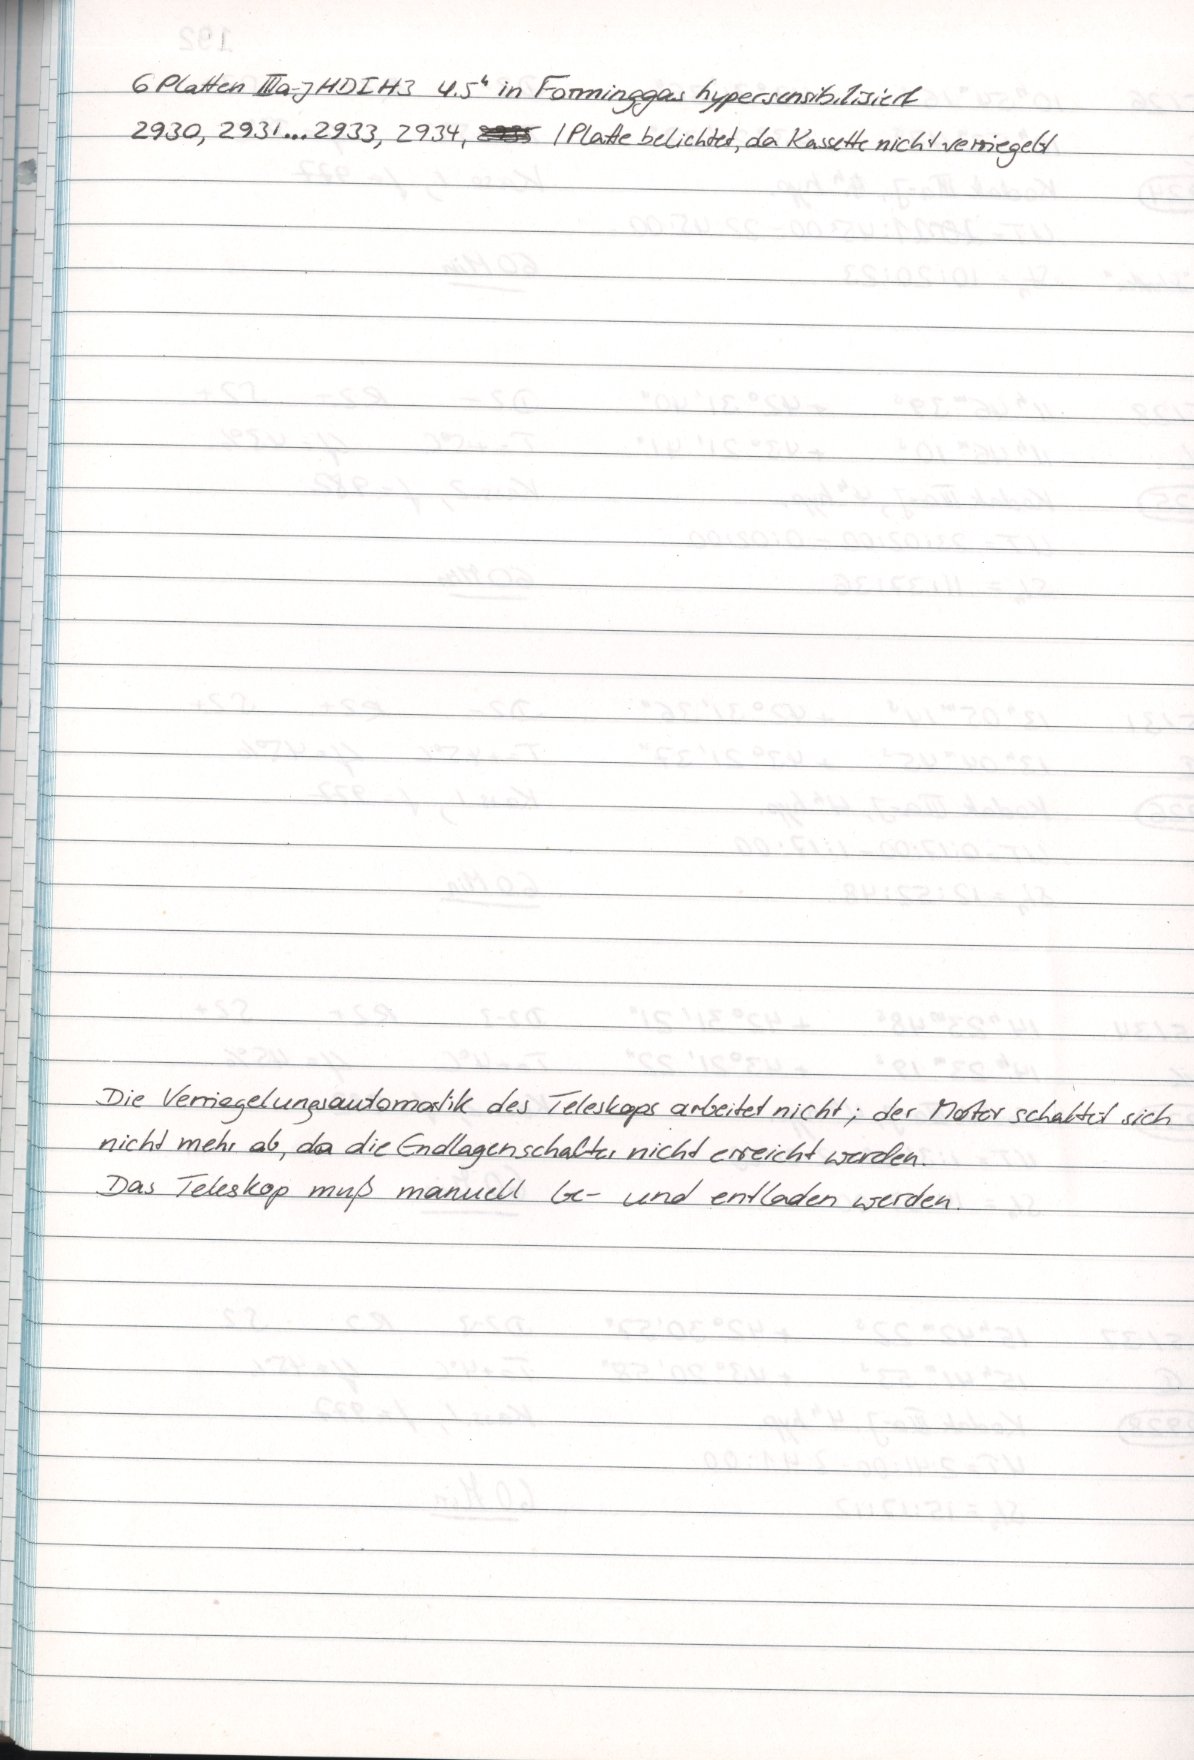 6 Platten IIIa-J HDIH3 4.5ʰ in Forminggas hypersensibilisiert
2930, 2931...2933, 2934, 1 Platte belichtet, da Kassette nicht verriegelt
Die Verriegelungsautomatik des Teleskops arbeitet nicht; der Motor schaltet sich
nicht mehr ab, da die Endlagenschalter nicht erreicht werden.
Das Teleskop muß manuell be- und entladen werden.